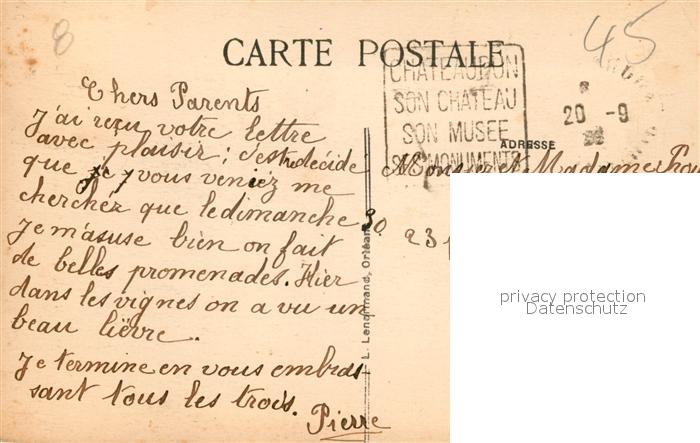 8
45
CARTE POSTALE
CHATEAUDUN
SON CHATEAU
SON MUSEE
SES MONUMENTS
20 -9
ADRESSE
Chers Parents
J'ai reçu votre lettre
avec plaisir ; c'est decidé
que je vous veniez me
cherchez que le dimanche 30.
Je m'asuse bien on fait
de belles promenades. Hier
dans les vignes on a vu un
beau lièvre.
Je termine en vous embras-
sant tous les trois.
Pierre
L. Lenormand, Orléans
Monsieur et Madame
23
privacy protection
Datenschutz